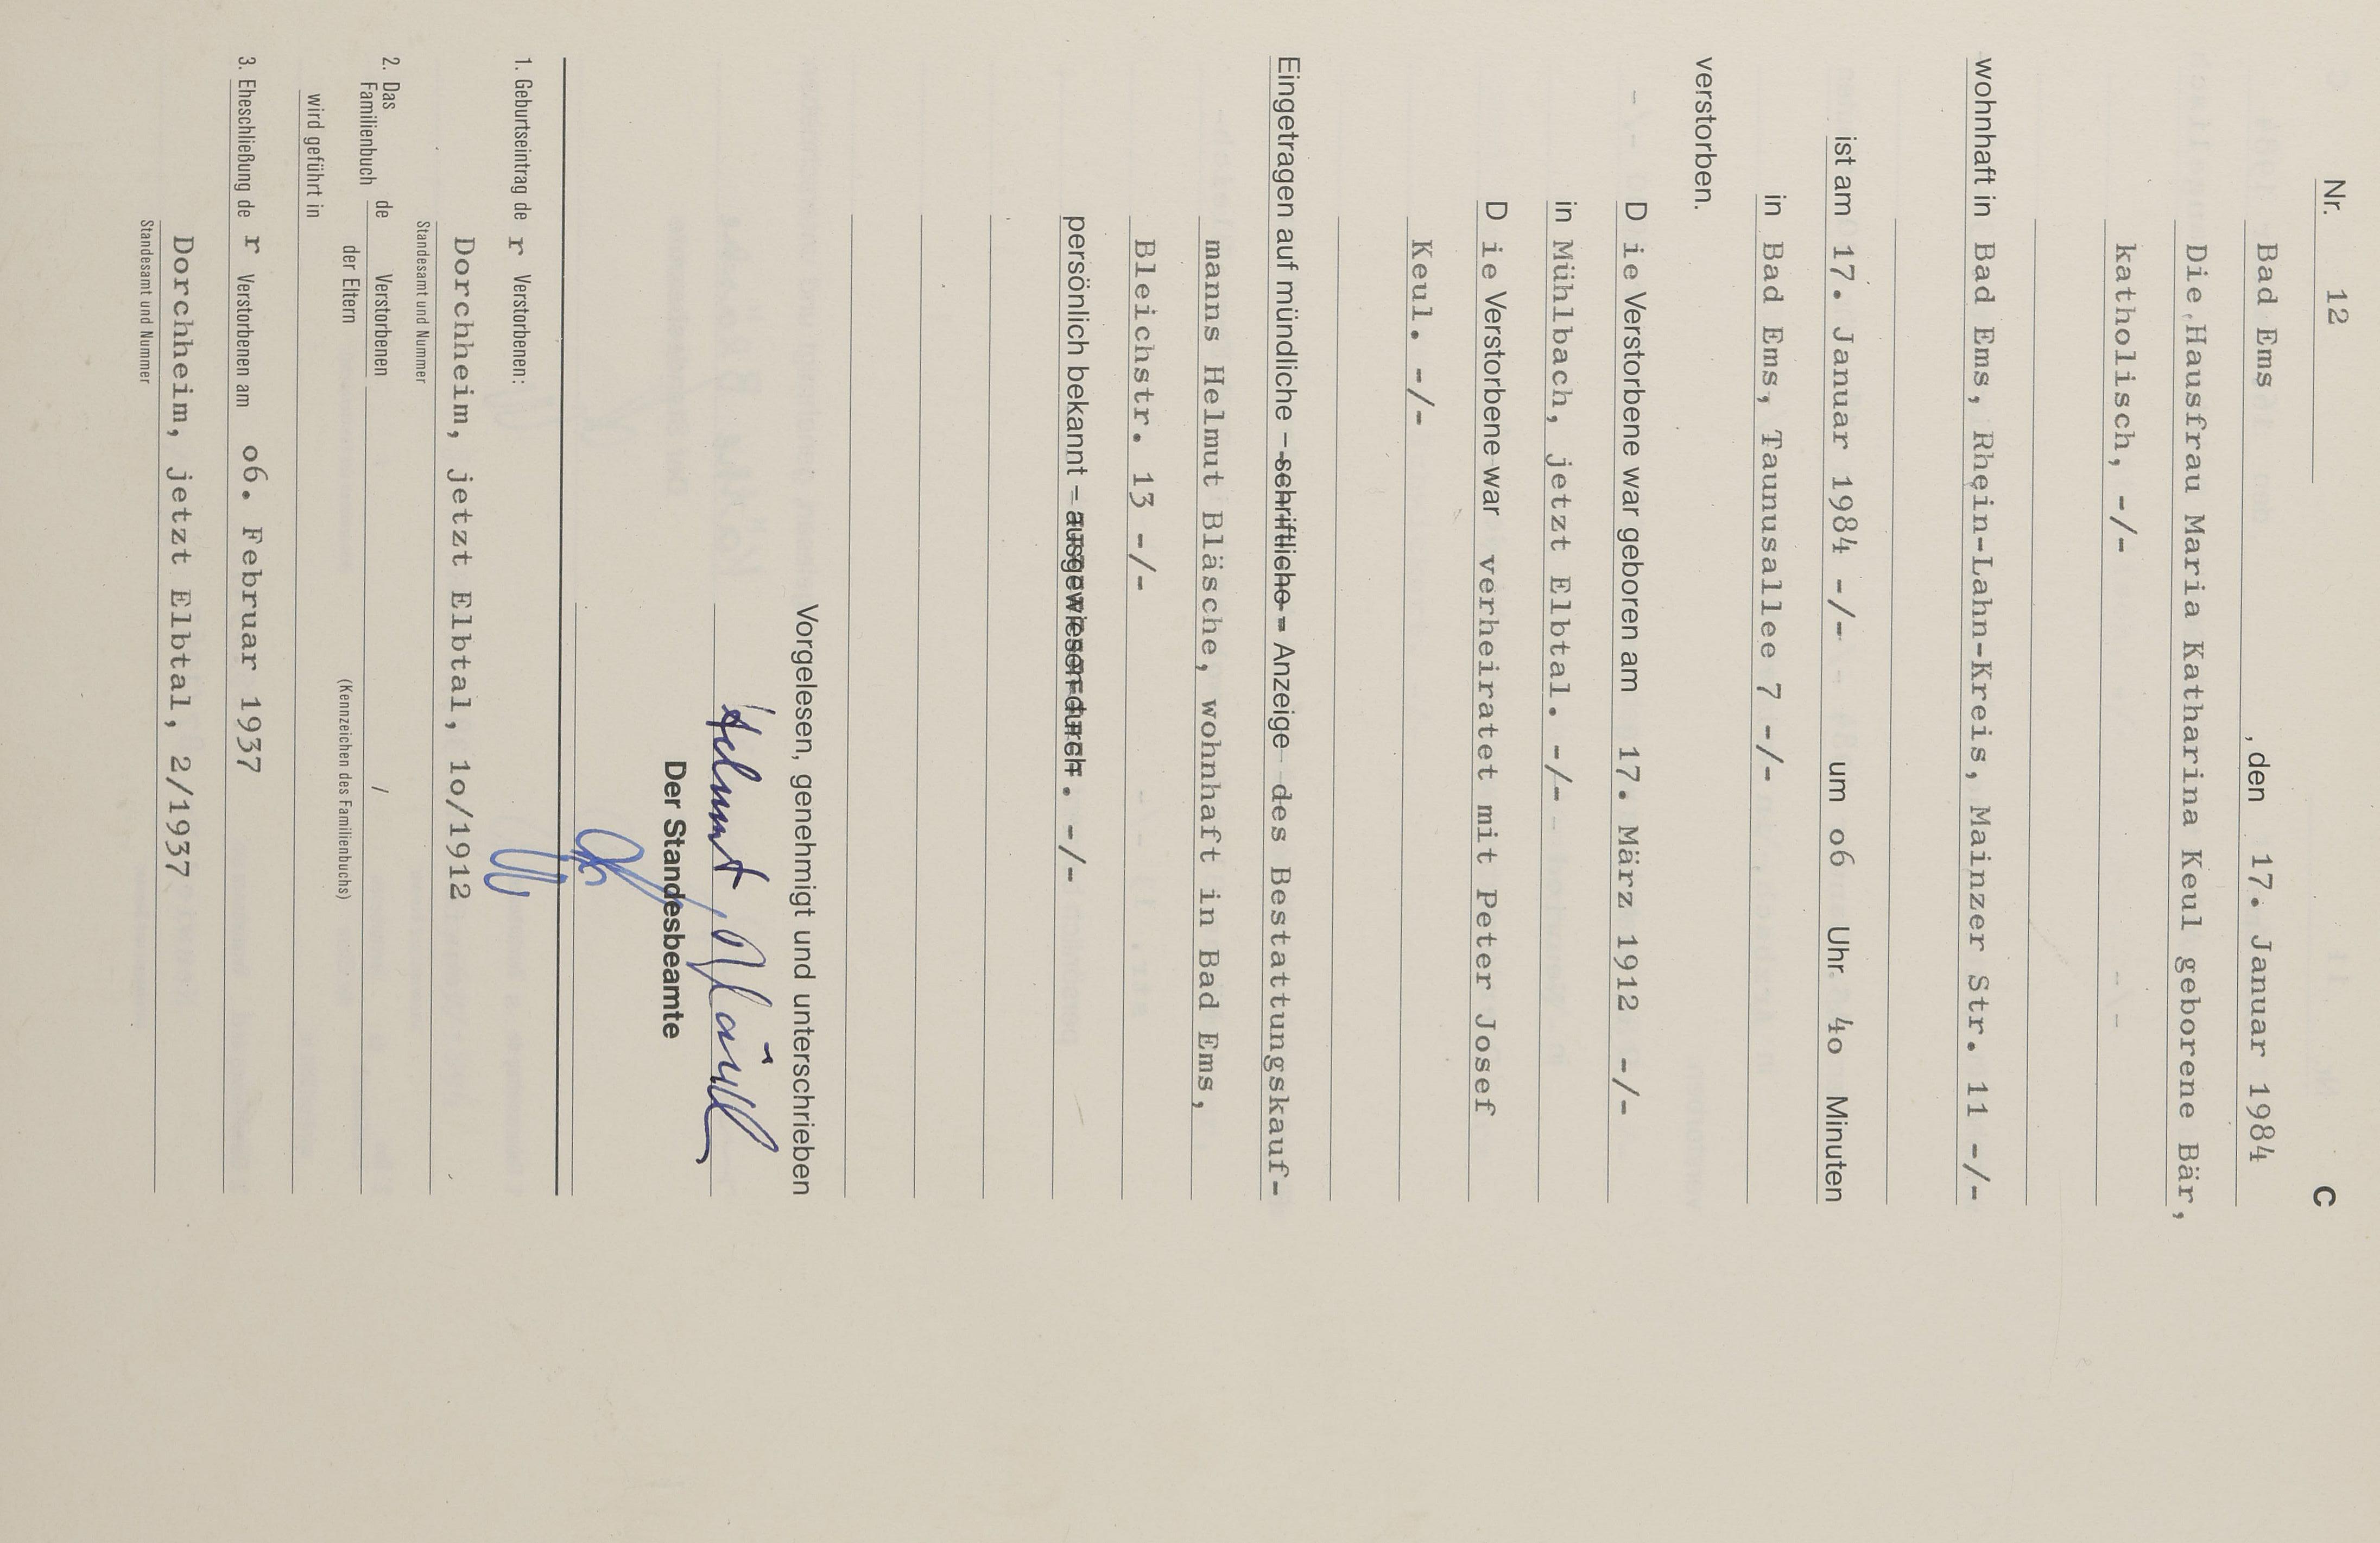 Nr. 12 C
Bad Ems , den 17. Januar 1984
Die Hausfrau Maria Katharina Keul geborene Bär,
katholisch, -/-
wohnhaft in Bad Ems, Rhein-Lahn-Kreis, Mainzer Str. 11 -/-
ist am 17. Januar 1984 -/- um o6 Uhr 4o Minuten
in Bad Ems, Taunusallee 7 -/-
verstorben.
D ie Verstorbene war geboren am 17. März 1912 -/-
in Mühlbach, jetzt Elbtal. -/-
D ie Verstorbene war verheiratet mit Peter Josef
Keul. -/-
Eingetragen auf mündliche – schriftliche – Anzeige des Bestattungskauf-
manns Helmut Bläsche, wohnhaft in Bad Ems,
Bleichstr. 13 -/-
persönlich bekannt – ausgewiesen durch . -/-
Vorgelesen, genehmigt und unterschrieben
Helmut Bläsche
Der Standesbeamte
1. Geburtseintrag de r Verstorbenen:
Dorchheim, jetzt Elbtal, 1o/1912
Standesamt und Nummer
2. Das Familienbuch de Verstorbenen /
der Eltern (Kennzeichen des Familienbuchs)
wird geführt in
3. Eheschließung de r Verstorbenen am o6. Februar 1937
Dorchheim, jetzt Elbtal, 2/1937
Standesamt und Nummer